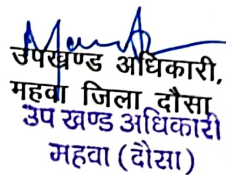 उपखण्ड अधिकारी,
महवा जिला दौसा
उप खण्ड अधिकारी
महवा (दौसा)